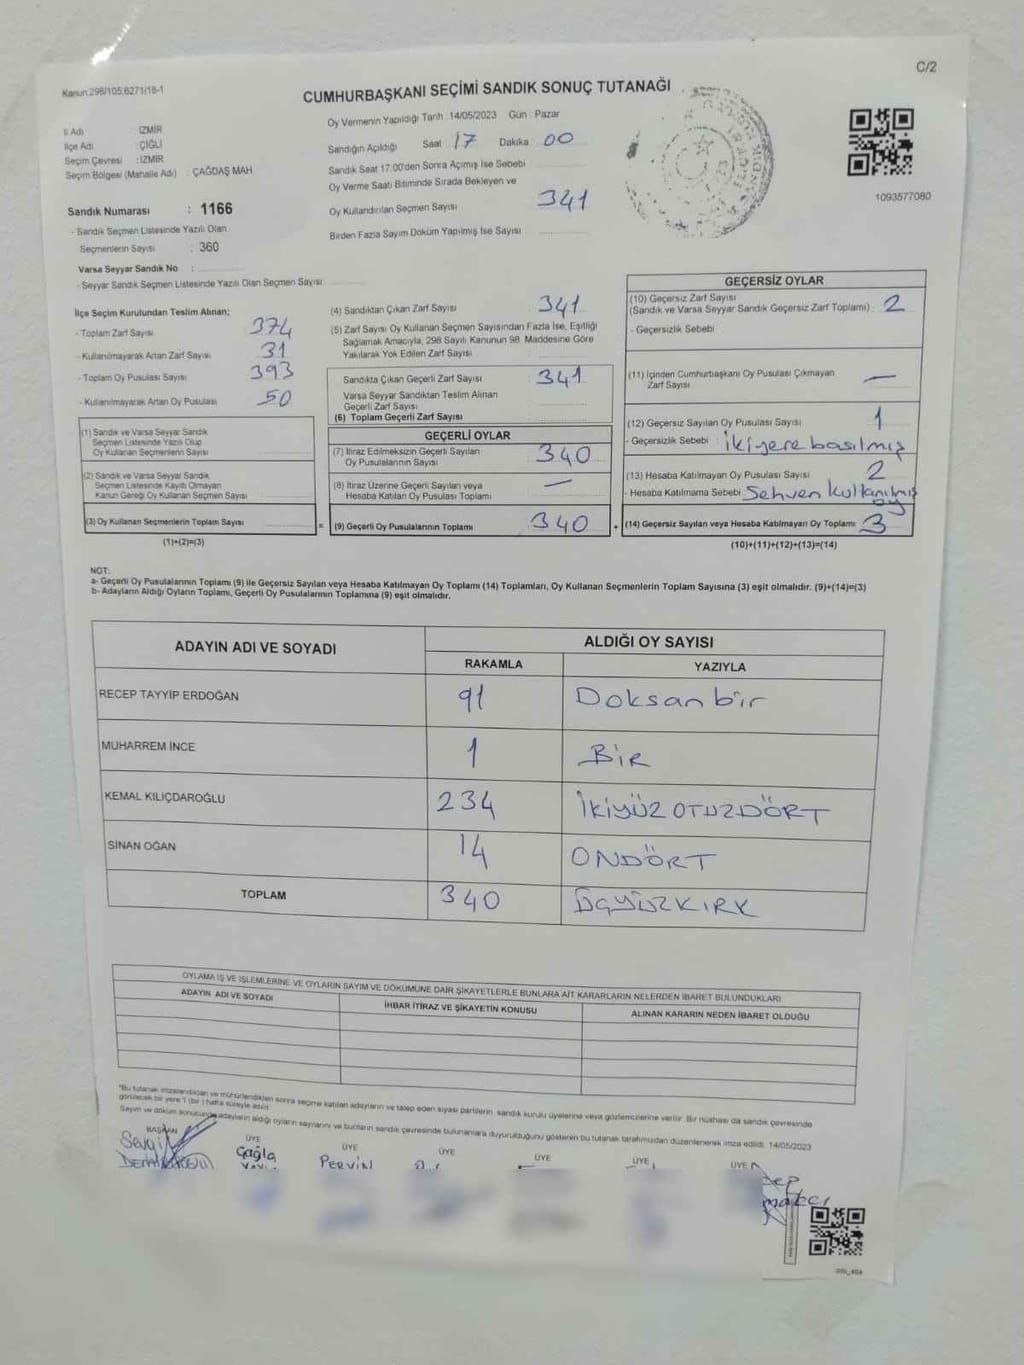 Kanun.298/105,6271/18-1
C/2
CUMHURBAŞKANI SEÇİMİ SANDIK SONUÇ TUTANAĞI
İl Adı : İZMİR
İlçe Adı : ÇİĞLİ
Seçim Çevresi : İZMİR
Seçim Bölgesi (Mahalle Adı) : ÇAĞDAŞ MAH
Sandık Numarası : 1166
- Sandık Seçmen Listesinde Yazılı Olan
Seçmenlerin Sayısı : 360
Varsa Seyyar Sandık No :
- Seyyar Sandık Seçmen Listesinde Yazılı Olan Seçmen Sayısı
Oy Vermenin Yapıldığı Tarih : 14/05/2023 Gün : Pazar
Sandığın Açıldığı Saat 17 Dakika 00
Sandık Saat 17.00'den Sonra Açımış İse Sebebi
Oy Verme Saati Bitiminde Sırada Bekleyen ve
Oy Kullandırılan Seçmen Sayısı 341
Birden Fazla Sayım Döküm Yapılmış İse Sayısı
1093577080
İlçe Seçim Kurulundan Teslim Alınan;
- Toplam Zarf Sayısı 374
- Kullanılmayarak Artan Zarf Sayısı 31
- Toplam Oy Pusulası Sayısı 393
- Kullanılmayarak Artan Oy Pusulası 50
(1) Sandık ve Varsa Seyyar Sandık
Seçmen Listesinde Yazılı Olup
Oy Kullanan Seçmenlerin Sayısı
(2) Sandık ve Varsa Seyyar Sandık
Seçmen Listesinde Kayıtlı Olmayan
Kanun Gereği Oy Kullanan Seçmen Sayısı
(3) Oy Kullanan Seçmenlerin Toplam Sayısı
(1)+(2)=(3)
(4) Sandıktan Çıkan Zarf Sayısı 341
(5) Zarf Sayısı Oy Kullanan Seçmen Sayısından Fazla İse, Eşitliği
Sağlamak Amacıyla, 298 Sayılı Kanunun 98. Maddesine Göre
Yakılarak Yok Edilen Zarf Sayısı
Sandıkta Çıkan Geçerli Zarf Sayısı 341
Varsa Seyyar Sandıktan Teslim Alınan
Geçerli Zarf Sayısı
(6) Toplam Geçerli Zarf Sayısı
GEÇERLİ OYLAR
(7) İtiraz Edilmeksizin Geçerli Sayılan
Oy Pusulalarının Sayısı 340
(8) İtiraz Üzerine Geçerli Sayılan veya
Hesaba Katılan Oy Pusulası Toplamı —
= (9) Geçerli Oy Pusulalarının Toplamı 340
GEÇERSİZ OYLAR
(10) Geçersiz Zarf Sayısı
(Sandık ve Varsa Seyyar Sandık Geçersiz Zarf Toplamı) : 2
- Geçersizlik Sebebi
(11) İçinden Cumhurbaşkanı Oy Pusulası Çıkmayan
Zarf Sayısı —
(12) Geçersiz Sayılan Oy Pusulası Sayısı 1
- Geçersizlik Sebebi : İki yere basılmış
(13) Hesaba Katılmayan Oy Pusulası Sayısı 2
- Hesaba Katılmama Sebebi : Sehven kullanılmış
+ (14) Geçersiz Sayılan veya Hesaba Katılmayan Oy Toplamı 3
(10)+(11)+(12)+(13)=(14)
NOT:
a- Geçerli Oy Pusulalarının Toplamı (9) ile Geçersiz Sayılan veya Hesaba Katılmayan Oy Toplamı (14) Toplamları, Oy Kullanan Seçmenlerin Toplam Sayısına (3) eşit olmalıdır. (9)+(14)=(3)
b- Adayların Aldığı Oyların Toplamı, Geçerli Oy Pusulalarının Toplamına (9) eşit olmalıdır.
ADAYIN ADI VE SOYADI
ALDIĞI OY SAYISI
RAKAMLA YAZIYLA
RECEP TAYYİP ERDOĞAN 91 Doksan bir
MUHARREM İNCE 1 BİR
KEMAL KILIÇDAROĞLU 234 İKİYÜZ OTUZDÖRT
SİNAN OĞAN 14 ONDÖRT
TOPLAM 340 ÜÇYÜZKIRK
OYLAMA İŞ VE İŞLEMLERİNE VE OYLARIN SAYIM VE DÖKÜMÜNE DAİR ŞİKAYETLERLE BUNLARA AİT KARARLARIN NELERDEN İBARET BULUNDUKLARI
ADAYIN ADI VE SOYADI İHBAR İTİRAZ VE ŞİKAYETİN KONUSU ALINAN KARARIN NEDEN İBARET OLDUĞU
*Bu tutanak imzalandıktan ve mühürlendikten sonra seçime katılan adayların ve talep eden siyasi partilerin, sandık kurulu üyelerine veya gözlemcilerine verilir. Bir nüshası da sandık çevresinde
görülecek bir yere 1 (bir) hafta süreyle asılır.
Sayım ve döküm sonucunda adayların aldığı oyların sayılarını ve bunların sandık çevresinde bulunanlara duyurulduğunu gösteren bu tutanak tarafımızdan düzenlenerek imza edildi. 14/05/2023
BAŞKAN ÜYE ÜYE ÜYE ÜYE ÜYE ÜYE
Sevgi Çağla PERVİN